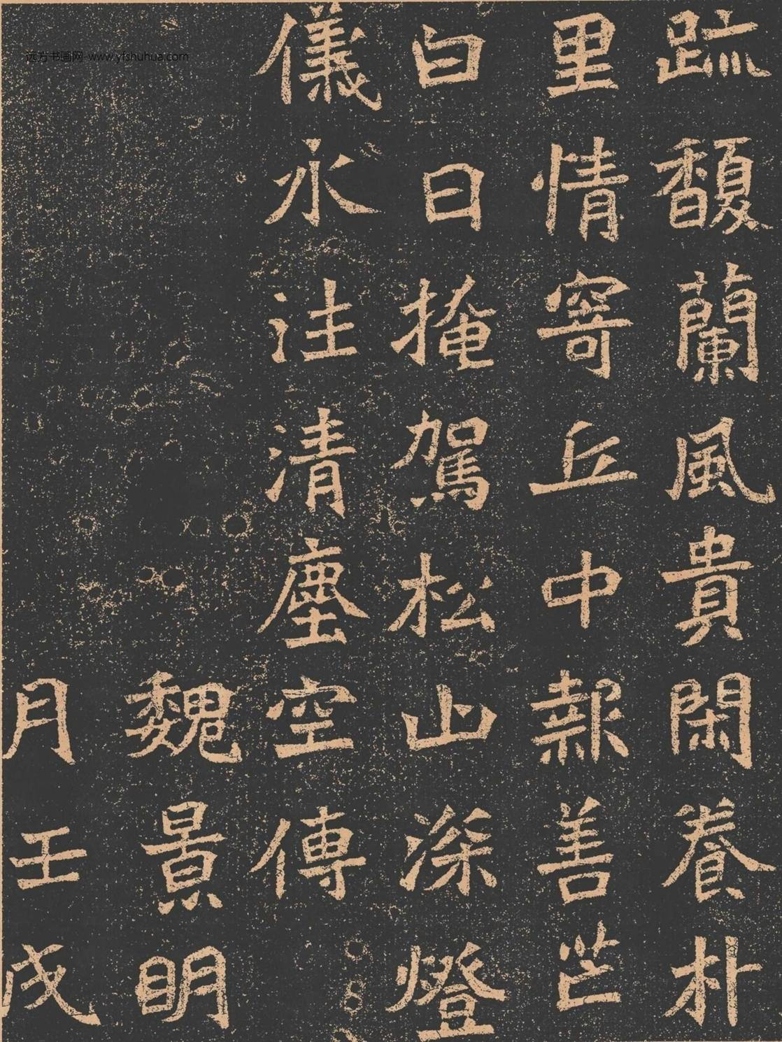 疏馥蘭風貴閑眷朴
里情寄丘中報善芒
白日掩駕松山深燈
儀永注清塵空傳
魏景明
月壬戌
远方书画网-www.yfshuhua.com